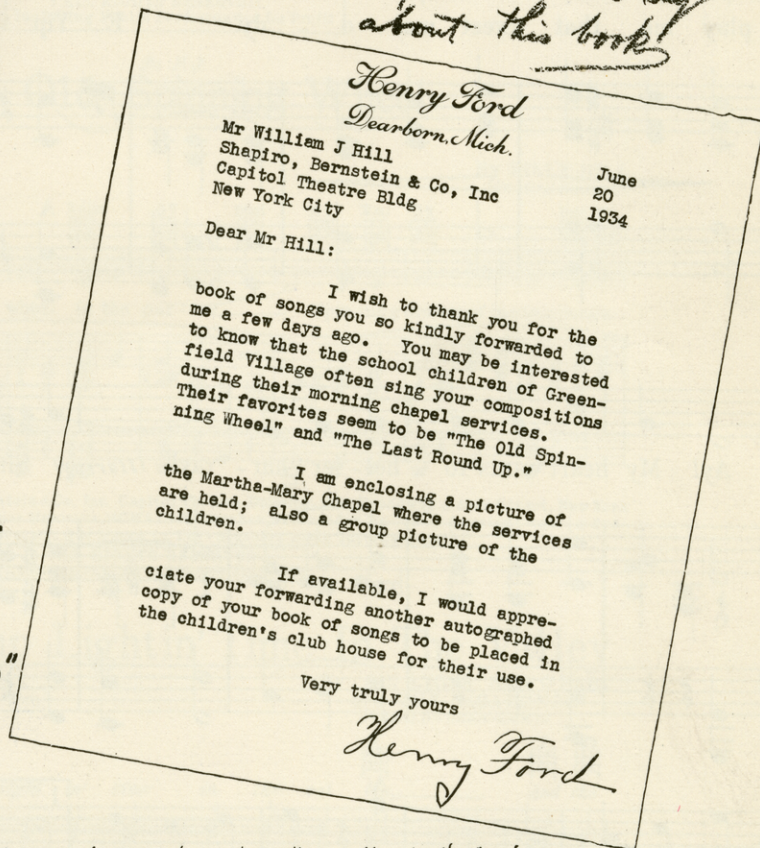 about this book!
Henry Ford
Dearborn, Mich.
Mr William J Hill
Shapiro, Bernstein & Co, Inc
Capitol Theatre Bldg
New York City
June
20
1934
Dear Mr Hill:
I wish to thank you for the
book of songs you so kindly forwarded to
me a few days ago. You may be interested
to know that the school children of Green-
field Village often sing your compositions
during their morning chapel services.
Their favorites seem to be "The Old Spin-
ning Wheel" and "The Last Round Up."
I am enclosing a picture of
the Martha-Mary Chapel where the services
are held; also a group picture of the
children.
If available, I would appre-
ciate your forwarding another autographed
copy of your book of songs to be placed in
the children's club house for their use.
Very truly yours
Henry Ford